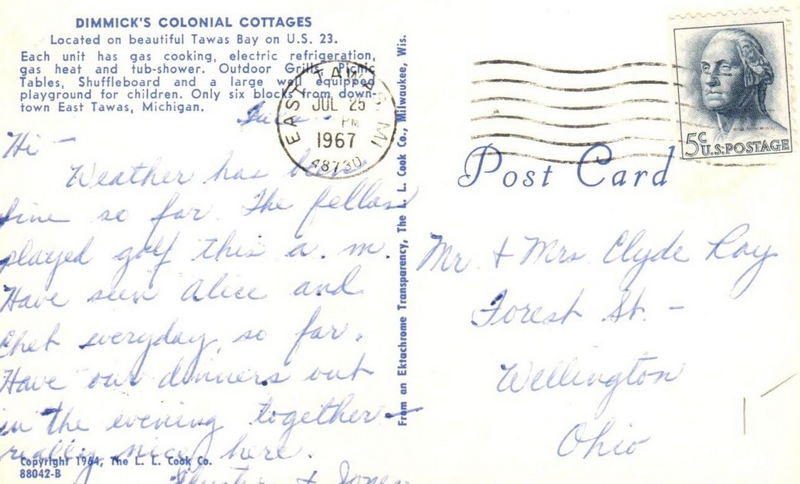 DIMMICK'S COLONIAL COTTAGES
Located on beautiful Tawas Bay on U.S. 23.
Each unit has gas cooking, electric refrigeration,
gas heat and tub-shower. Outdoor Grills, Picnic
Tables, Shuffleboard and a large well equipped
playground for children. Only six blocks from down-
town East Tawas, Michigan.
Tues -
Hi -
Weather has been
fine so far. The fellas
played golf this a.m.
Have seen Alice and
Chet everyday so far.
Have our dinners out
in the evening together -
really nice here.
Copyright 1964, The L. L. Cook Co.
88042-B
From an Ektachrome Transparency, The L. L. Cook Co., Milwaukee, Wis.
EAST TAWAS, MI
JUL 25
PM
1967
48730
5c U.S. POSTAGE
Post Card
Mr. & Mrs Clyde Ray
Forest St. -
Wellington
Ohio